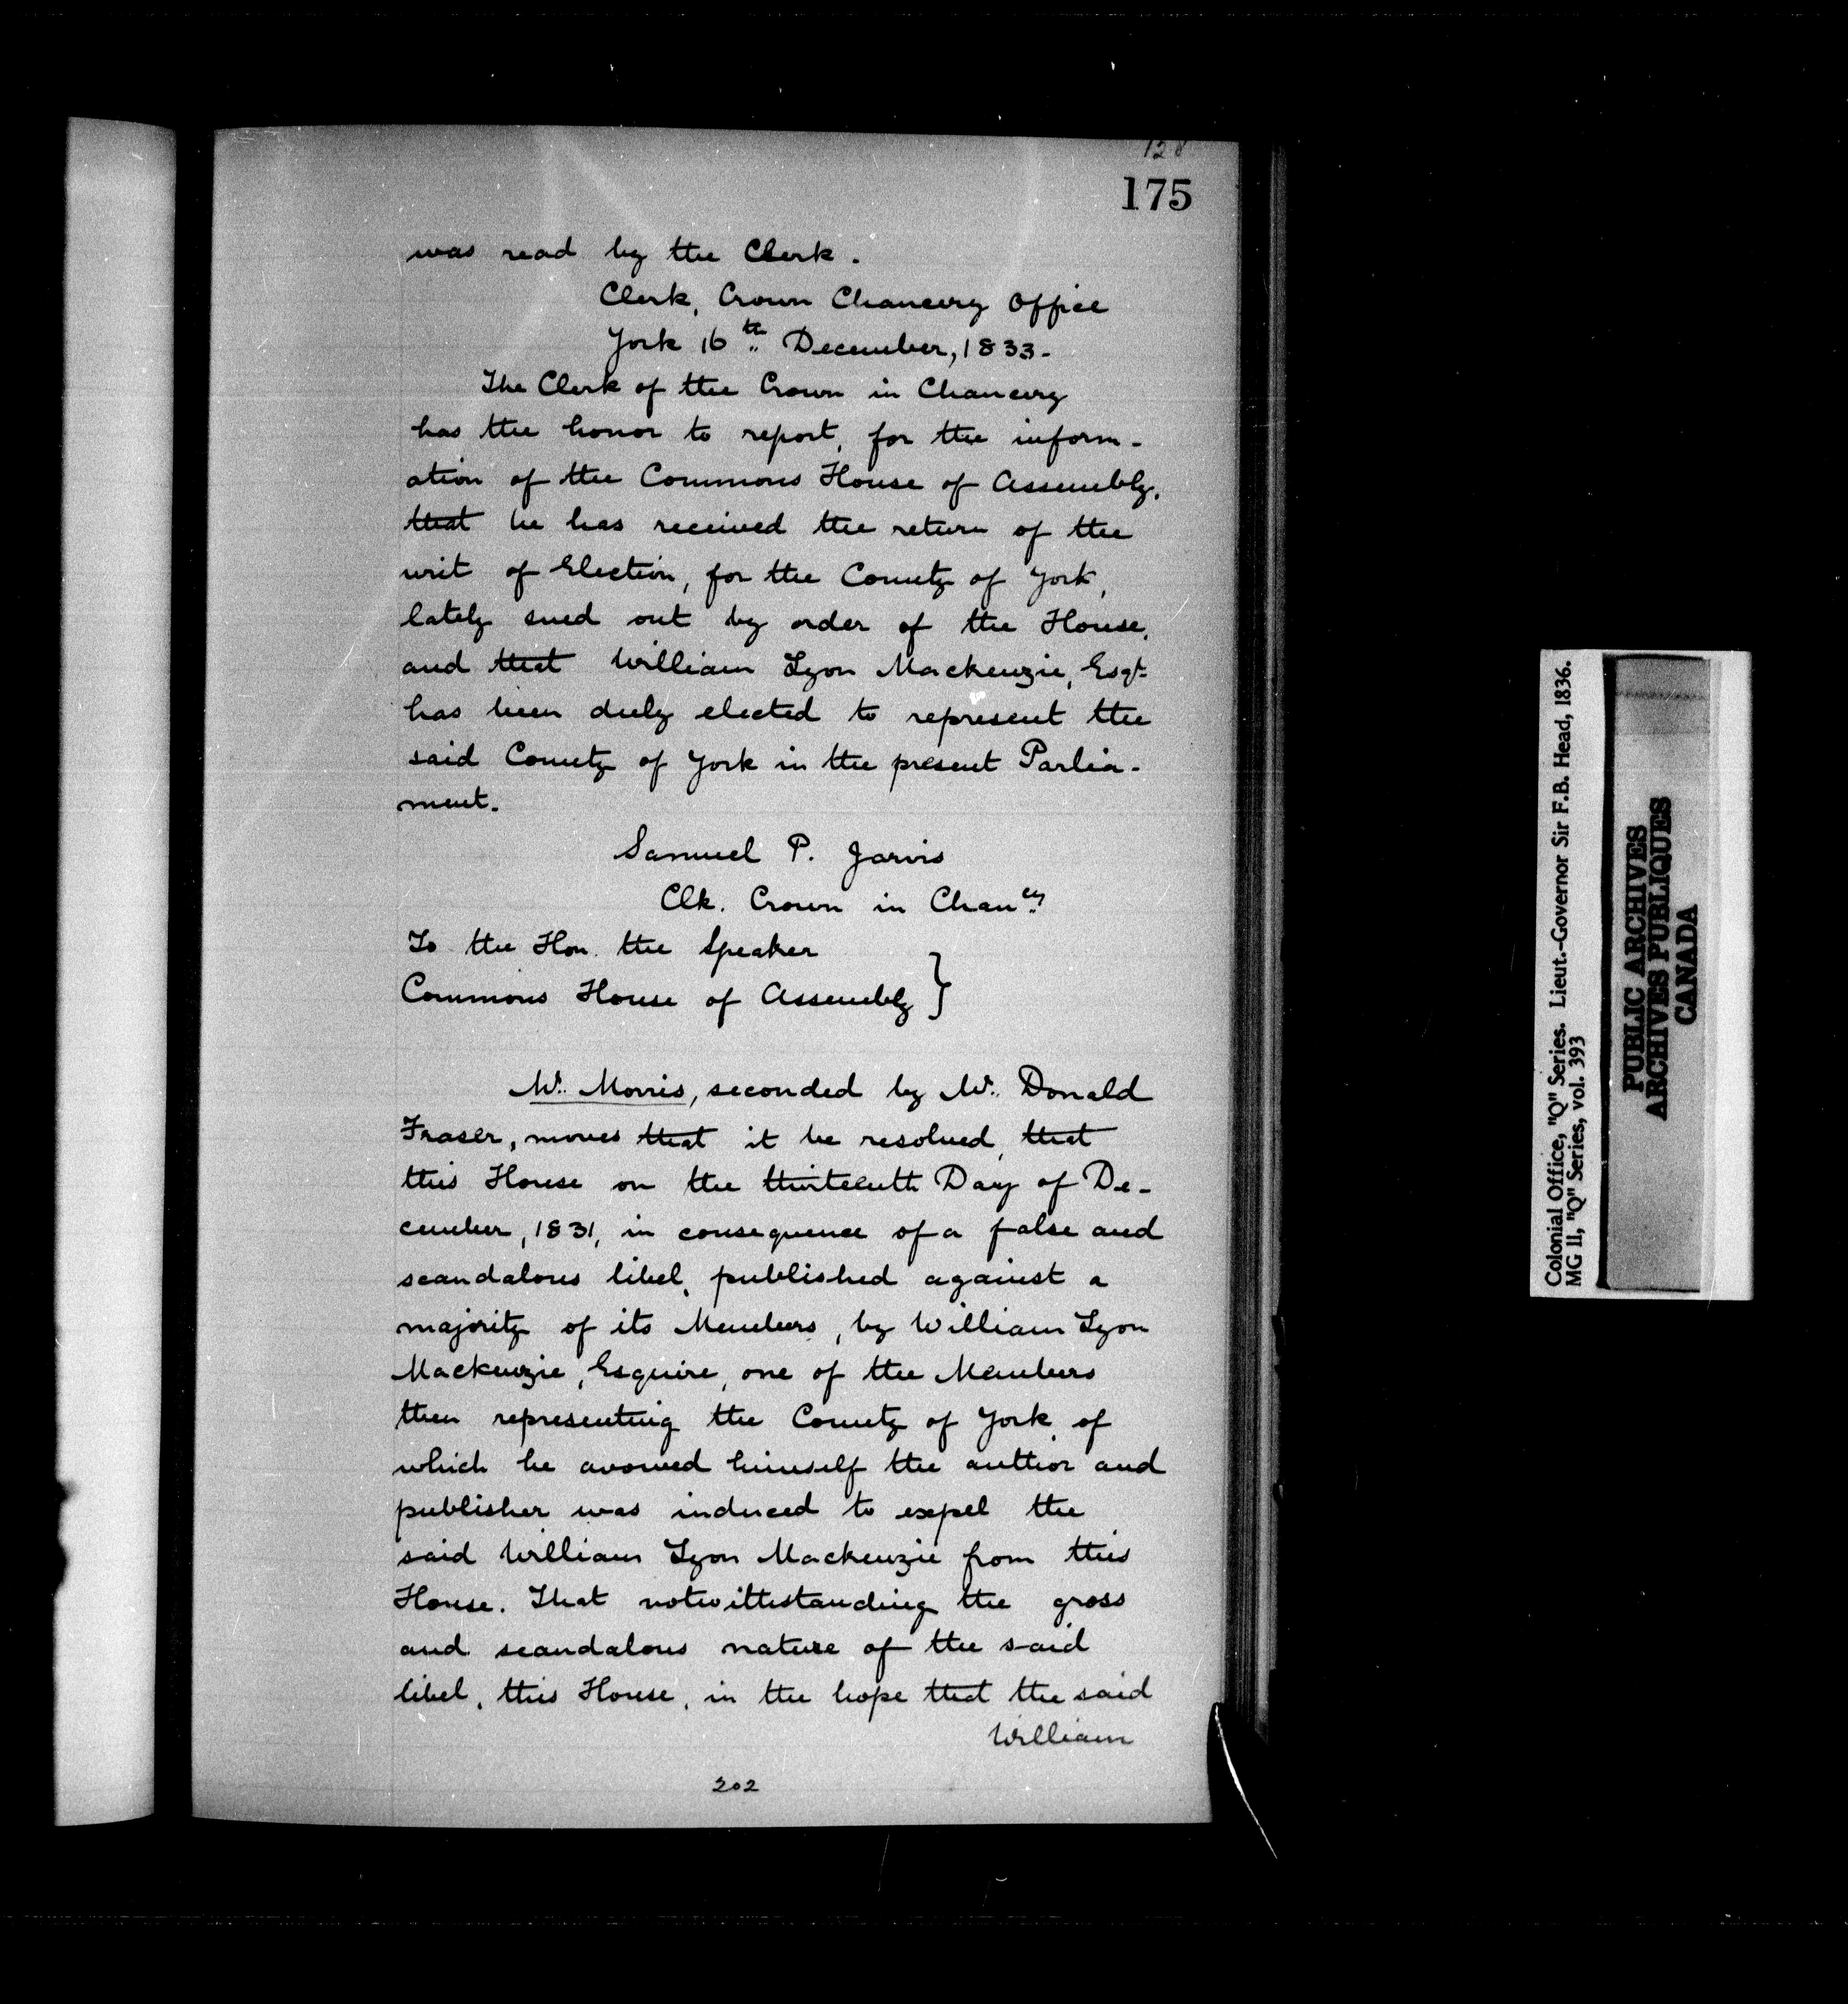 128
175
was read by the Clerk.
Clerk, Crown Chancery Office
York 16th December, 1833-
The Clerk of the Crown in Chancery
has the honor to report, for the inform-
ation of the Commons House of Assembly,
that he has received the return of the
writ of Election, for the County of York,
lately sued out by order of the House,
and that William Lyon Mackenzie, Esqr.
has been duly elected to represent the
said County of York in the present Parlia-
ment.
Samuel P. Jarvis
Clk. Crown in Chancy
To the Hon. the Speaker
Commons House of Assembly }
Mr. Morris, seconded by Mr. Donald
Fraser, moves that it be resolved, that
this House on the thirteenth Day of De-
cember, 1831, in consequence of a false and
scandalous libel, published against a
majority of its Members, by William Lyon
Mackenzie, Esquire, one of the Members
then representing the County of York, of
which he avowed himself the author and
publisher was induced to expel the
said William Lyon Mackenzie from this
House. That notwithstanding the gross
and scandalous nature of the said
libel, this House, in the hope that the said
William
202
Colonial Office, "Q" Series. Lieut.-Governor Sir F.B. Head, 1836.
MG 11, "Q" Series, vol. 393
PUBLIC ARCHIVES
ARCHIVES PUBLIQUES
CANADA